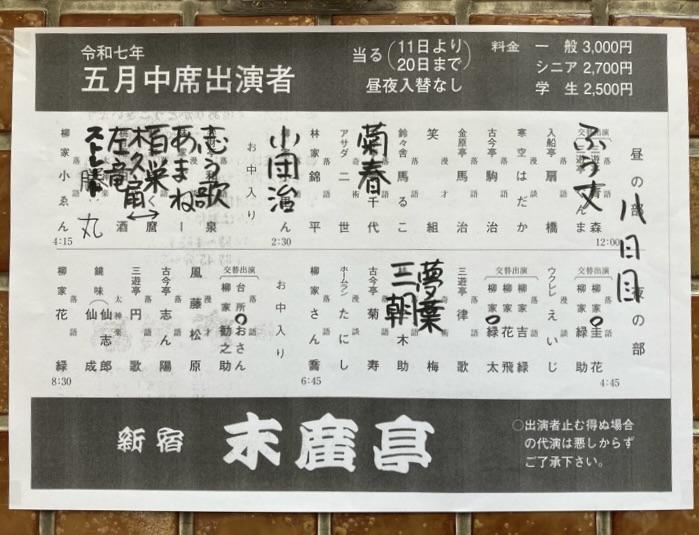 令和七年
五月中席出演者
当る(11日より
20日まで)
昼夜入替なし
料金 一般 3,000円
シニア 2,700円
学生 2,500円
八日目
昼の部
交替出演
12:00
ふう丈
入船亭扇橋
寒空はだか
古今亭駒治
金原亭馬治
笑組
鈴々舎馬るこ
菊春
アサダ二世
林家錦平
小団治
2:30
お中入り
志う歌
あまね
栢巣
左龍
ストレート松浦
丸
柳家小ゑん
4:15
夜の部
交替出演
柳家圭花
柳家緑助
4:45
ウクレレえいじ
交替出演
柳家吉緑
柳家花飛
柳家緑太
三遊亭律歌
夢葉
三朝
古今亭菊寿
ホームランたにし
柳家さん喬
6:45
お中入り
交替出演
台所おさん
柳家勧之助
風藤松原
古今亭志ん陽
三遊亭円歌
鏡味仙志郎
仙成
柳家花緑
8:30
新宿 末廣亭
○出演者止む得ぬ場合
の代演は悪しからず
ご了承下さい。